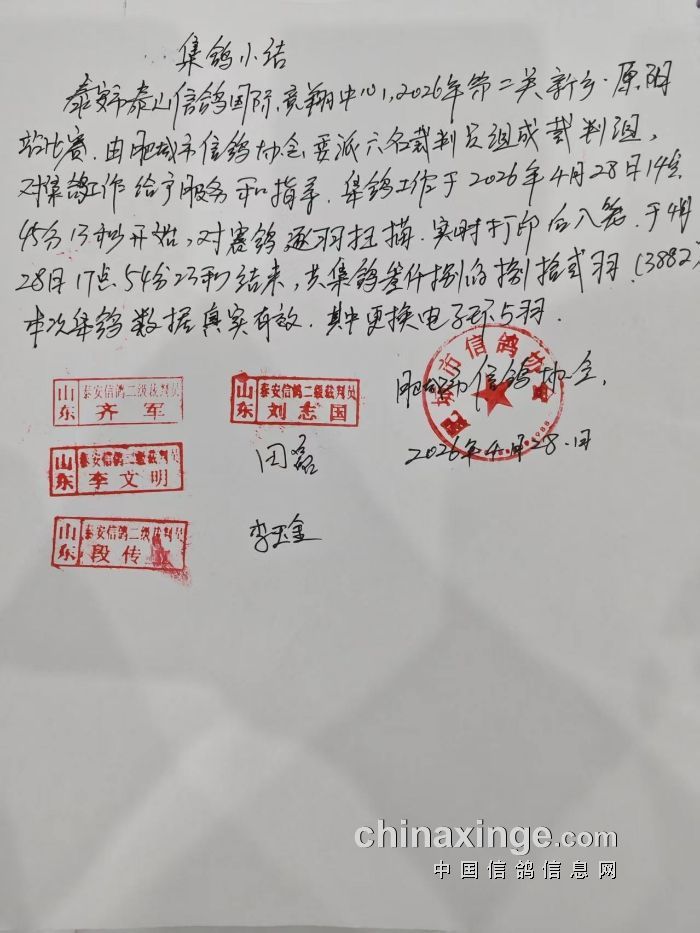 集鸽小结
泰安市泰山信鸽国际竞翔中心,2026年第二关新乡·原阳
站比赛.由肥城市信鸽协会委派六名裁判员组成裁判组,
对集鸽工作给予服务和指导.集鸽工作于2026年4月28日14点
45分13秒开始,对赛鸽逐羽扫描.实时打印后入笼.于4月
28日17点54分23秒结束,共集鸽叁仟捌佰捌拾贰羽.(3882)
本次集鸽数据真实有效.其中更换电子环5羽.
山东 泰安信鸽二级裁判员 齐军
山东 泰安信鸽二级裁判员 刘志国
肥城市信鸽协会
肥城市信鸽协会.
山东 泰安信鸽二级裁判员 李文明
田磊
2026年4月28日
山东 泰安信鸽二级裁判员 段传
李玉金
chinaxinge.com
中国信鸽信息网